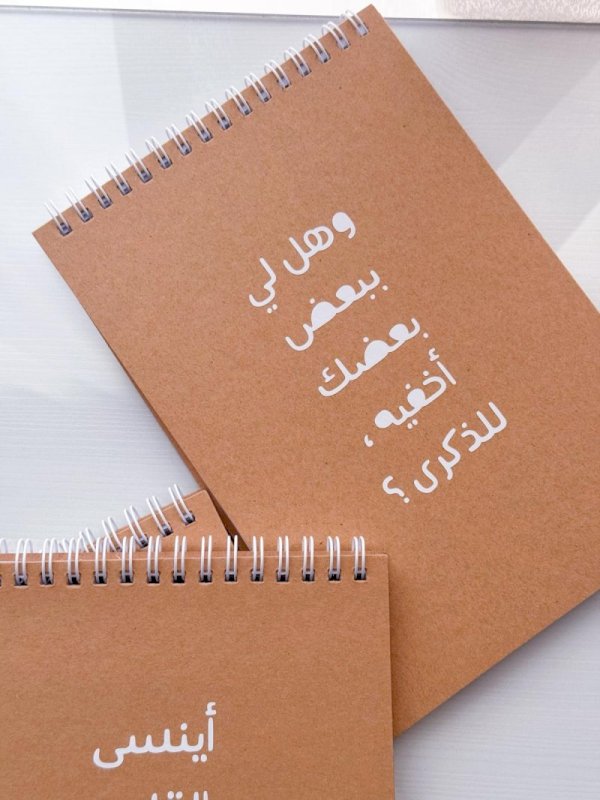 وهل لي
ببعض
بعضك
أخفيه،
للذكرى؟
أينسى